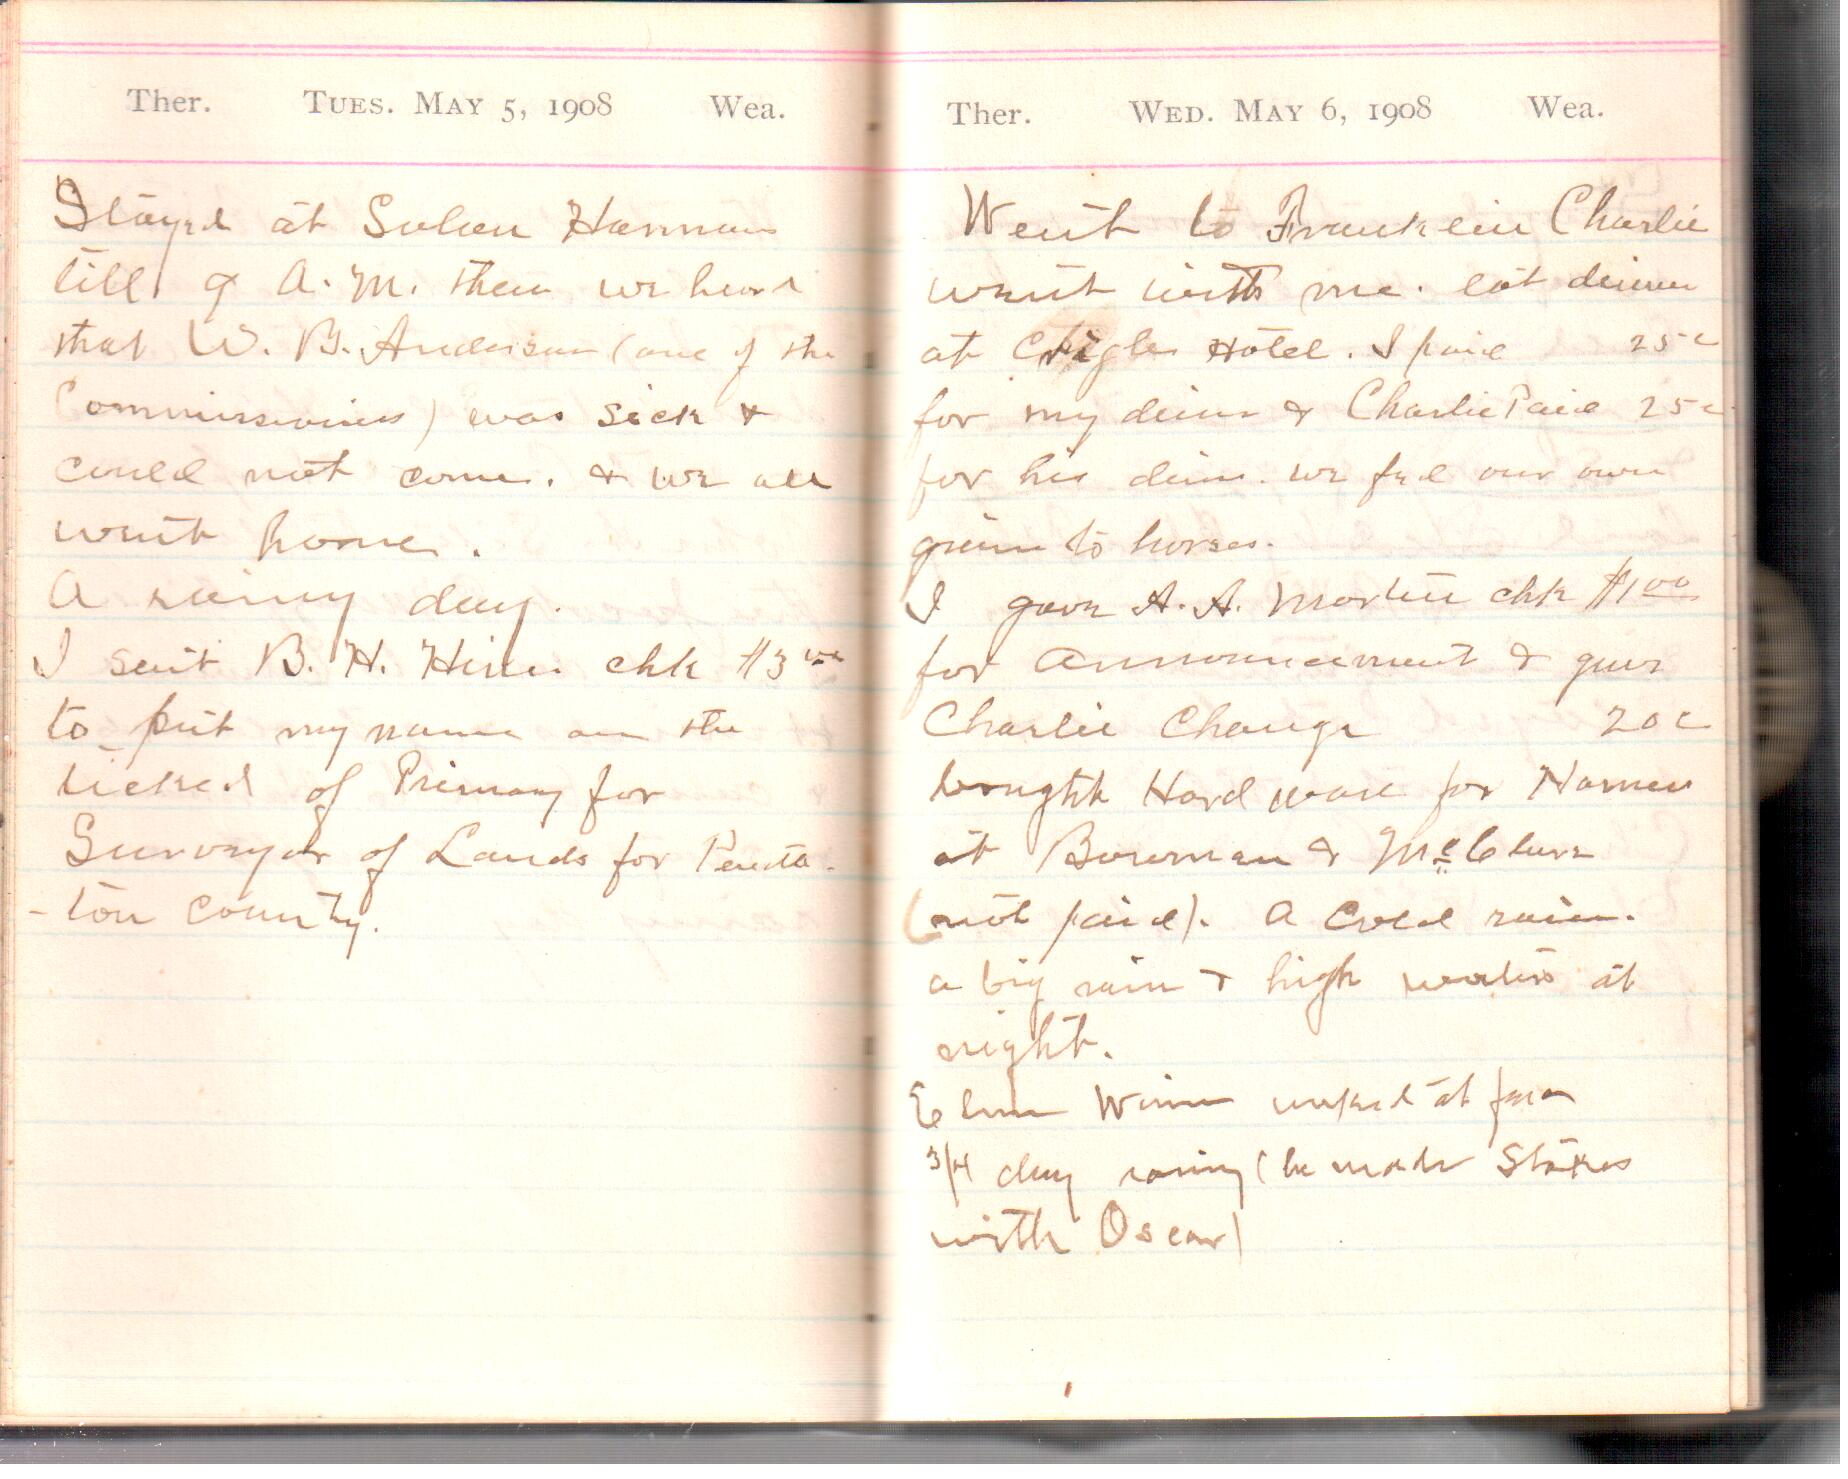 Ther. TUES. MAY 5, 1908 Wea.
Stayed at Solon Harmans
till 9 A.M. then we heard
that W. B. Anderson (one of the
Commissioners) was sick &
could not come. & we all
went home.
A rainy day.
I sent B. H. Hiner chk $3 00
to put my name on the
ticked of Primary for
Surveyor of Lands for Pendle-
-ton County.
Ther. WED. MAY 6, 1908 Wea.
Went to Franklin Charlie
went with me. eat dinner
at Hotel. I paid 25c
for my dinner & Charlie Paid 25c
for his dinn. we fed our own
grain to horses.
I gave A. A. Martin chk $1 00
for announcement & gave
Charlie Change 20c
bought Hard ware for Harness
at Bowman & McClure
(not paid). A Cold rain.
a big rain & high waters at
night.
worked at
3/4 day rainy (he made Stakes
with Oscar)